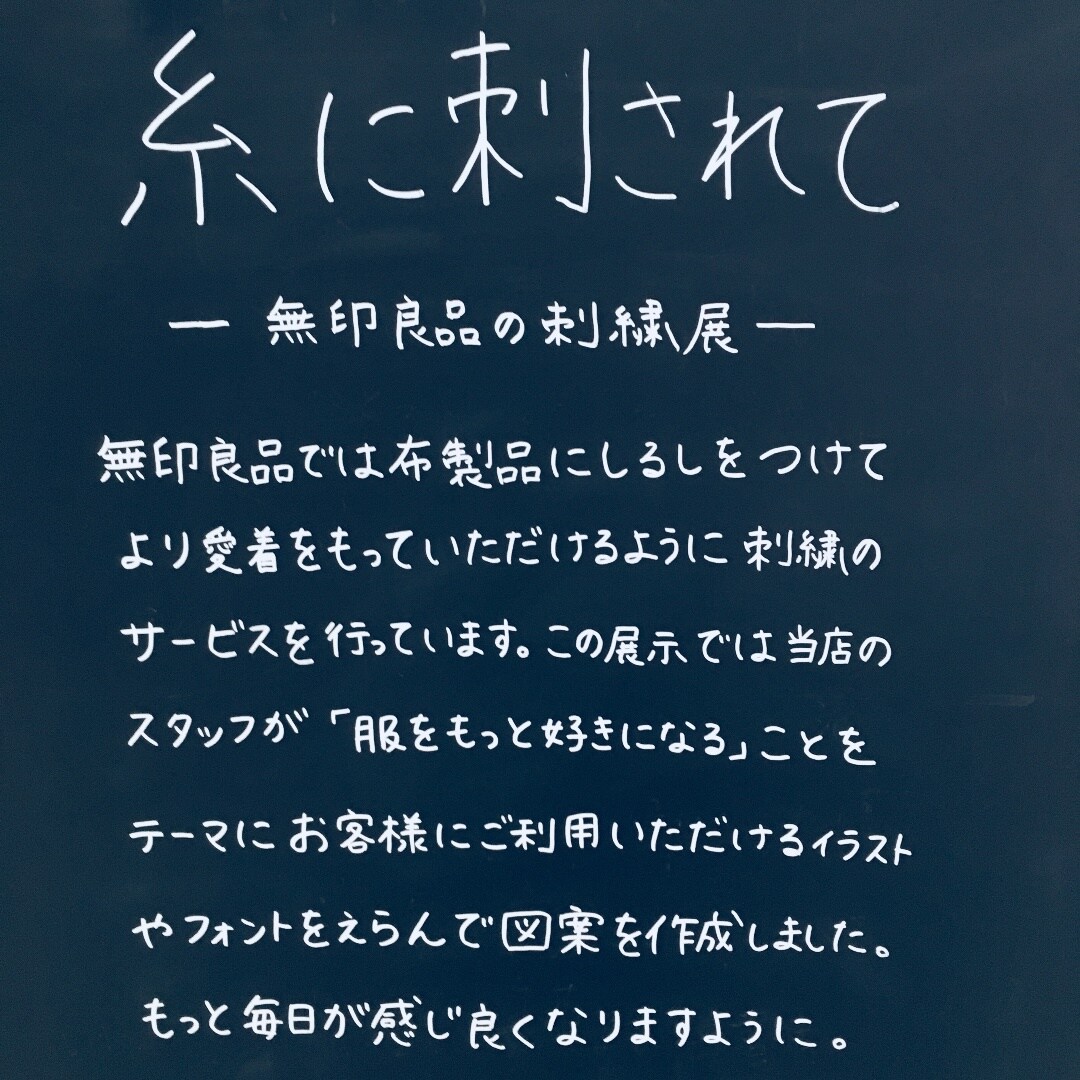 糸に刺されて
― 無印良品の刺繍展 ―
無印良品では布製品にしるしをつけて
より愛着をもっていただけるように刺繍の
サービスを行っています。この展示では当店の
スタッフが「服をもっと好きになる」ことを
テーマにお客様にご利用いただけるイラスト
やフォントをえらんで図案を作成しました。
もっと毎日が感じ良くなりますように。